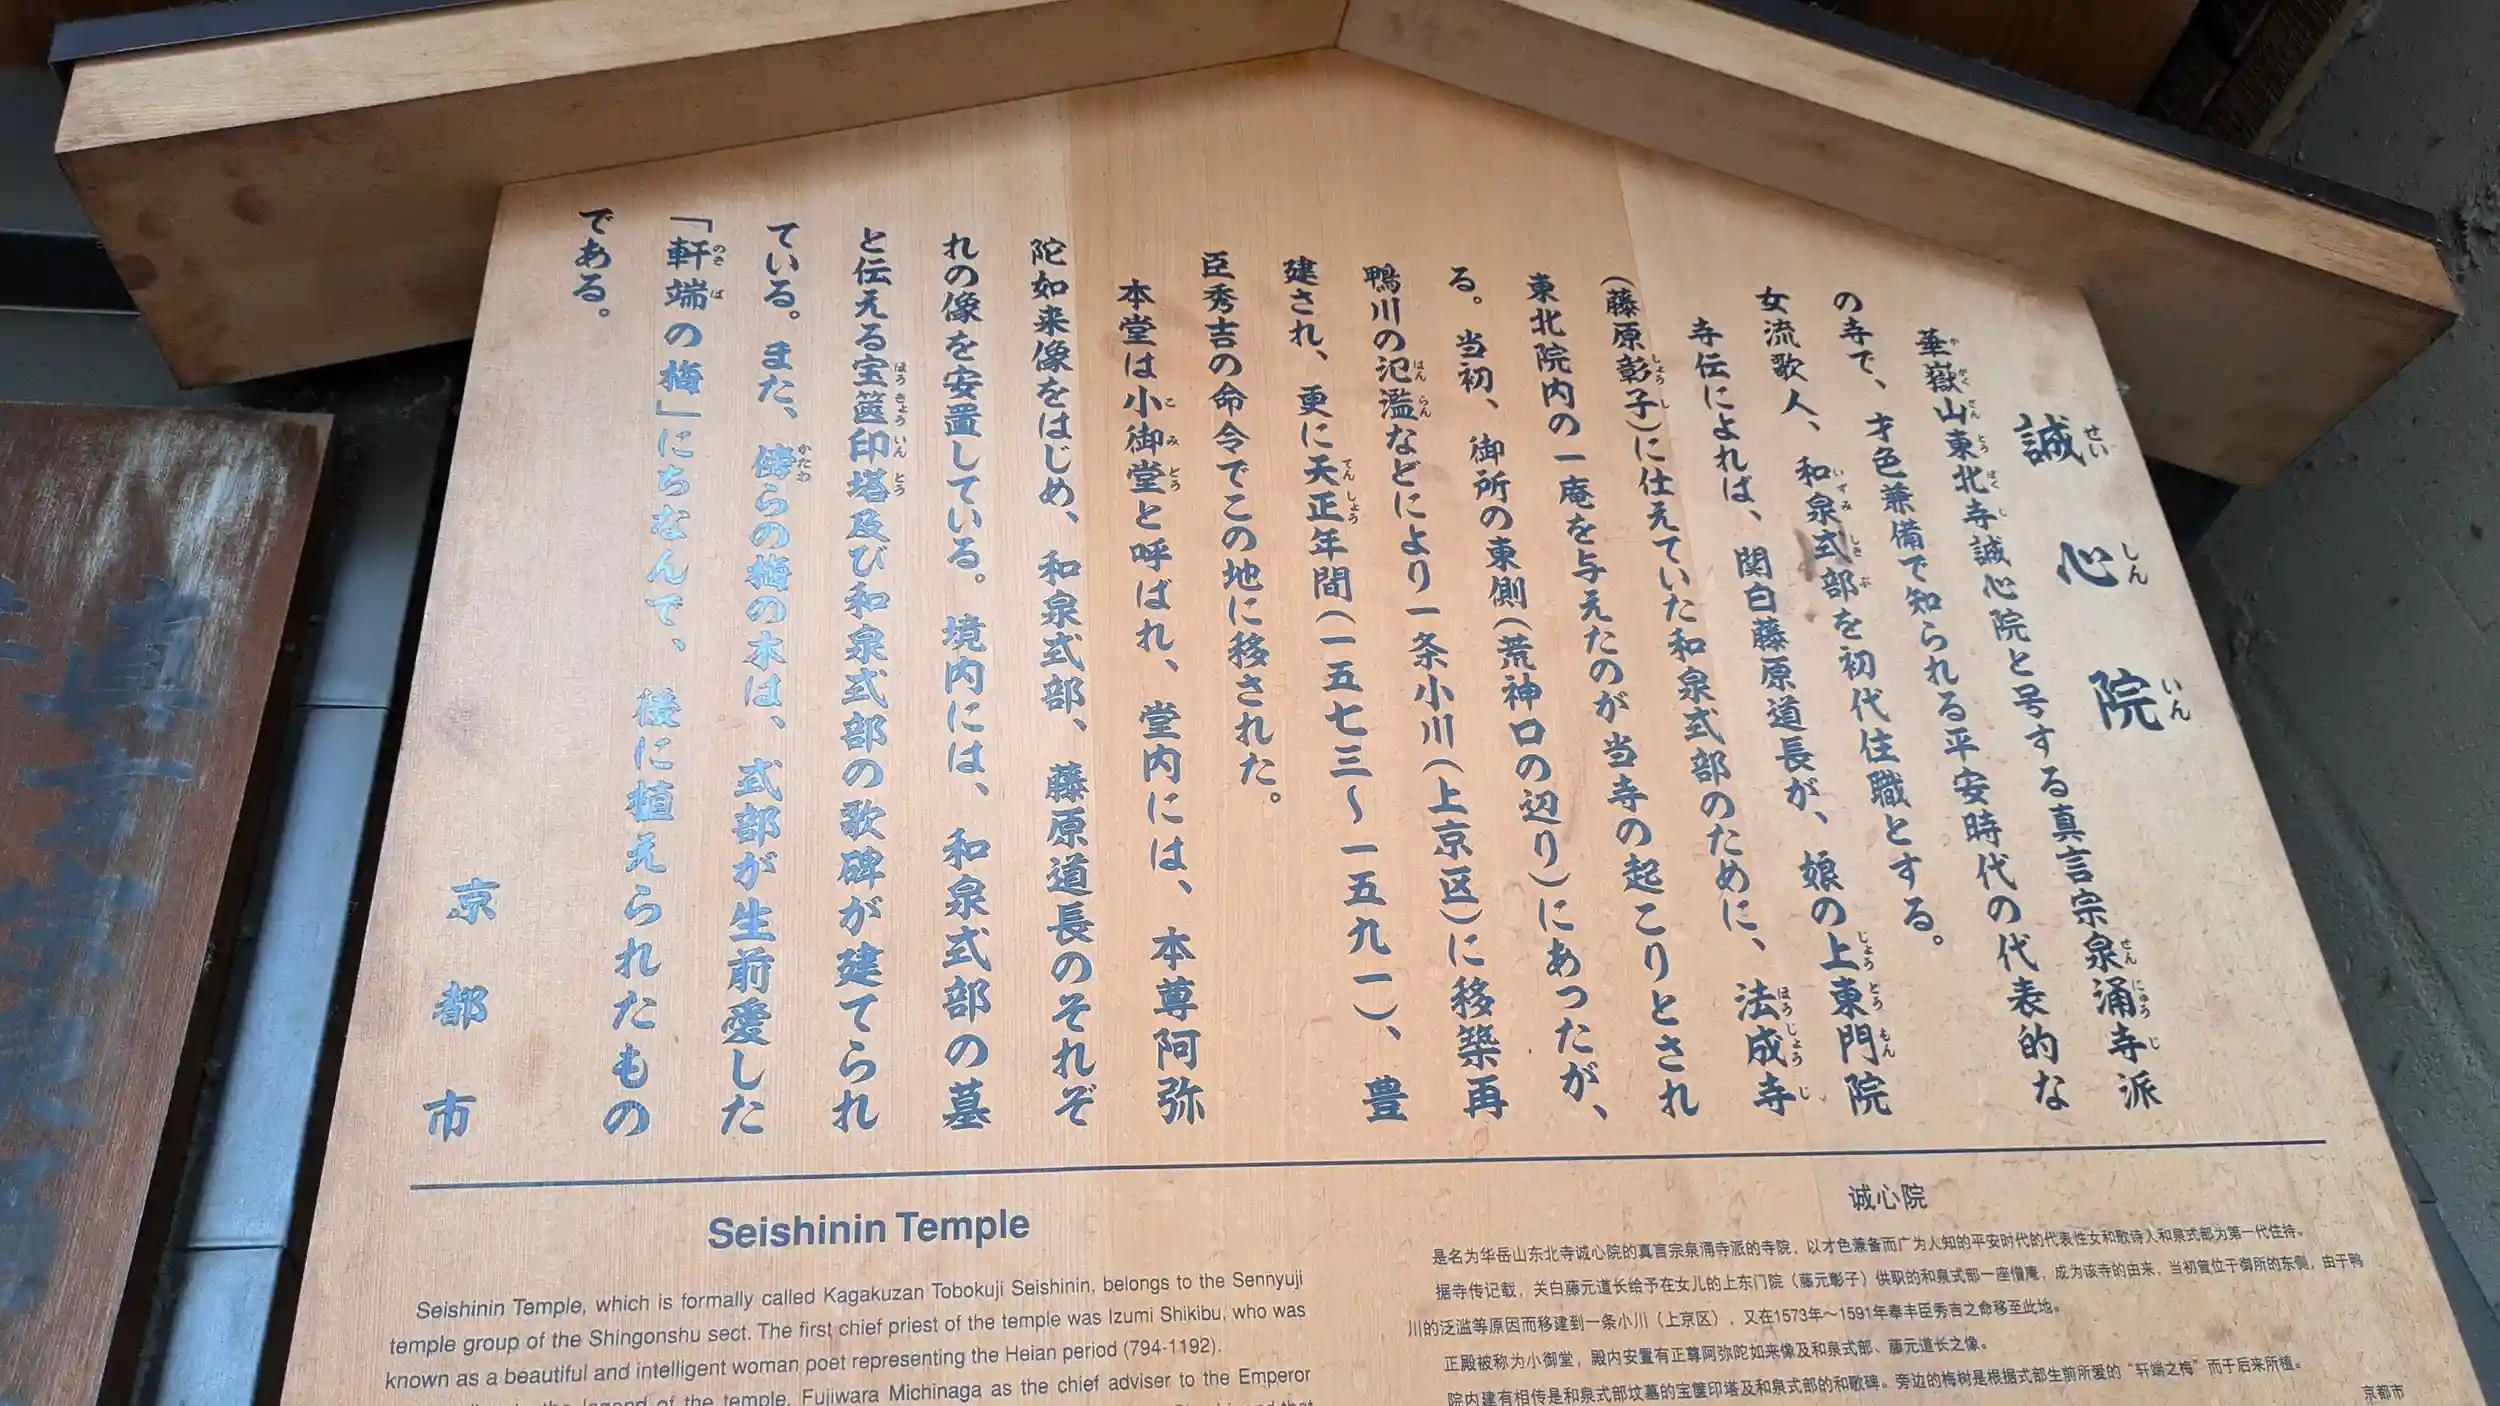 誠心院
華嶽山東北寺誠心院と号する真言宗泉涌寺派
の寺で、才色兼備で知られる平安時代の代表的な
女流歌人、和泉式部を初代住職とする。
寺伝によれば、関白藤原道長が、娘の上東門院
(藤原彰子)に仕えていた和泉式部のために、法成寺
東北院内の一庵を与えたのが当寺の起こりとされ
る。当初、御所の東側(荒神口の辺り)にあったが、
鴨川の氾濫などにより一条小川(上京区)に移築再
建され、更に天正年間(一五七三〜一五九一)、豊
臣秀吉の命令でこの地に移された。
本堂は小御堂と呼ばれ、堂内には、本尊阿弥
陀如来像をはじめ、和泉式部、藤原道長のそれぞ
れの像を安置している。境内には、和泉式部の墓
と伝える宝篋印塔及び和泉式部の歌碑が建てられ
ている。また、傍らの梅の木は、式部が生前愛した
「軒端の梅」にちなんで、後に植えられたもの
である。
京都市
Seishinin Temple
Seishinin Temple, which is formally called Kagakuzan Tobokuji Seishinin, belongs to the Sennyuji
temple group of the Shingonshu sect. The first chief priest of the temple was Izumi Shikibu, who was
known as a beautiful and intelligent woman poet representing the Heian period (794-1192).
the legend of the temple, Fujiwara Michinaga as the chief adviser to the Emperor
诚心院
是名为华岳山东北寺诚心院的真言宗泉涌寺派的寺院，以才色兼备而广为人知的平安时代的代表性女和歌诗人和泉式部为第一代住持。
据寺传记载，关白藤元道长给予在女儿的上东门院（藤元彰子）供职的和泉式部一座僧庵，成为该寺的由来，当初曾位于御所的东侧，由于鸭
川的泛滥等原因而移建到一条小川（上京区），又在1573年～1591年奉丰臣秀吉之命移至此地。
正殿被称为小御堂，殿内安置有正尊阿弥陀如来像及和泉式部、藤元道长之像。
院内建有相传是和泉式部坟墓的宝箧印塔及和泉式部的和歌碑。旁边的梅树是根据式部生前所爱的“轩端之梅”而于后来所植。
京都市